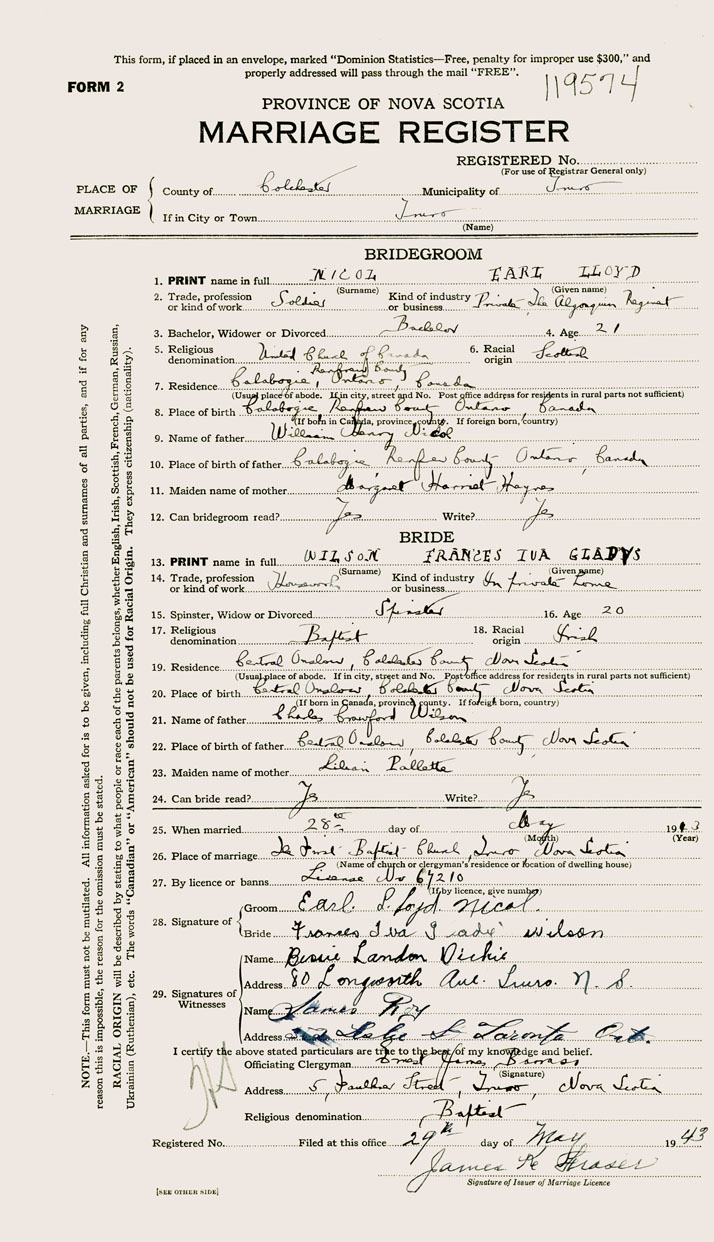 This form, if placed in an envelope, marked "Dominion Statistics—Free, penalty for improper use $300," and
properly addressed will pass through the mail "FREE".
119574
FORM 2
PROVINCE OF NOVA SCOTIA
MARRIAGE REGISTER
REGISTERED No.
(For use of Registrar General only)
PLACE OF MARRIAGE
County of Colchester Municipality of Truro
If in City or Town Truro
(Name)
BRIDEGROOM
1. PRINT name in full NICOL EARL LLOYD
(Surname) (Given name)
2. Trade, profession or kind of work Soldier Kind of industry or business Private The Algonquin Regiment
3. Bachelor, Widower or Divorced Bachelor 4. Age 21
5. Religious denomination United Church of Canada 6. Racial origin Scottish
Renfrew County
7. Residence Calabogie, Ontario, Canada
(Usual place of abode. If in city, street and No. Post office address for residents in rural parts not sufficient)
8. Place of birth Calabogie Renfrew County Ontario, Canada
(If born in Canada, province, county. If foreign born, country)
9. Name of father William Henry Nicol
10. Place of birth of father Calabogie Renfrew County Ontario, Canada
11. Maiden name of mother Margaret Harriet Haynes
12. Can bridegroom read? Yes Write? Yes
BRIDE
13. PRINT name in full WILSON FRANCES IVA GLADYS
(Surname) (Given name)
14. Trade, profession or kind of work Housework Kind of industry or business In private home
15. Spinster, Widow or Divorced Spinster 16. Age 20
17. Religious denomination Baptist 18. Racial origin Irish
19. Residence Central Onslow, Colchester County, Nova Scotia
(Usual place of abode. If in city, street and No. Post office address for residents in rural parts not sufficient)
20. Place of birth Central Onslow, Colchester County, Nova Scotia
(If born in Canada, province, county. If foreign born, country)
21. Name of father Charles Crawford Wilson
22. Place of birth of father Central Onslow, Colchester County, Nova Scotia
23. Maiden name of mother Lilian Pallette
24. Can bride read? Yes Write? Yes
25. When married 28th day of May 1943
(Month) (Year)
26. Place of marriage The First Baptist Church, Truro Nova Scotia
(Name of church or clergyman's residence or location of dwelling house)
27. By licence or banns License No 67210
(If by licence, give number)
28. Signature of
Groom Earl Lloyd Nicol.
Bride Frances Iva Gladys Wilson
29. Signatures of Witnesses
Name Bessie Landon Dickie
Address 80 Longworth Ave. Truro. N. S.
Name James Roy
Address St Toronto Ont.
I certify the above stated particulars are true to the best of my knowledge and belief.
Officiating Clergyman Ernest James Barrass
(Signature)
Address 5, Faulkner Street, Truro, Nova Scotia
Religious denomination Baptist
Registered No. Filed at this office 29th day of May 1943
James Fraser
Signature of Issuer of Marriage Licence
[SEE OTHER SIDE]
NOTE.—This form must not be mutilated. All information asked for is to be given, including full Christian and surnames of all parties, and if for any
reason this is impossible, the reason for the omission must be stated.
RACIAL ORIGIN will be described by stating to what people or race each of the parents belongs, whether English, Irish, Scottish, French, German, Russian,
Ukrainian (Ruthenian), etc. The words "Canadian" or "American" should not be used for Racial Origin. They express citizenship (nationality).